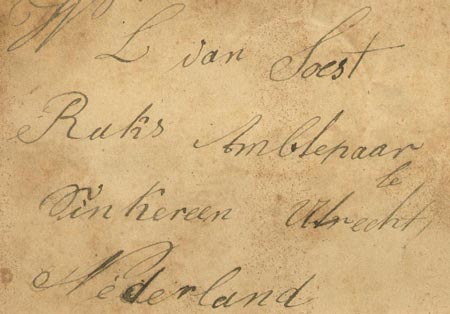 W
L van Soest
Ruks Amblenaar
te
Sinkereen Utrecht,
Nederland